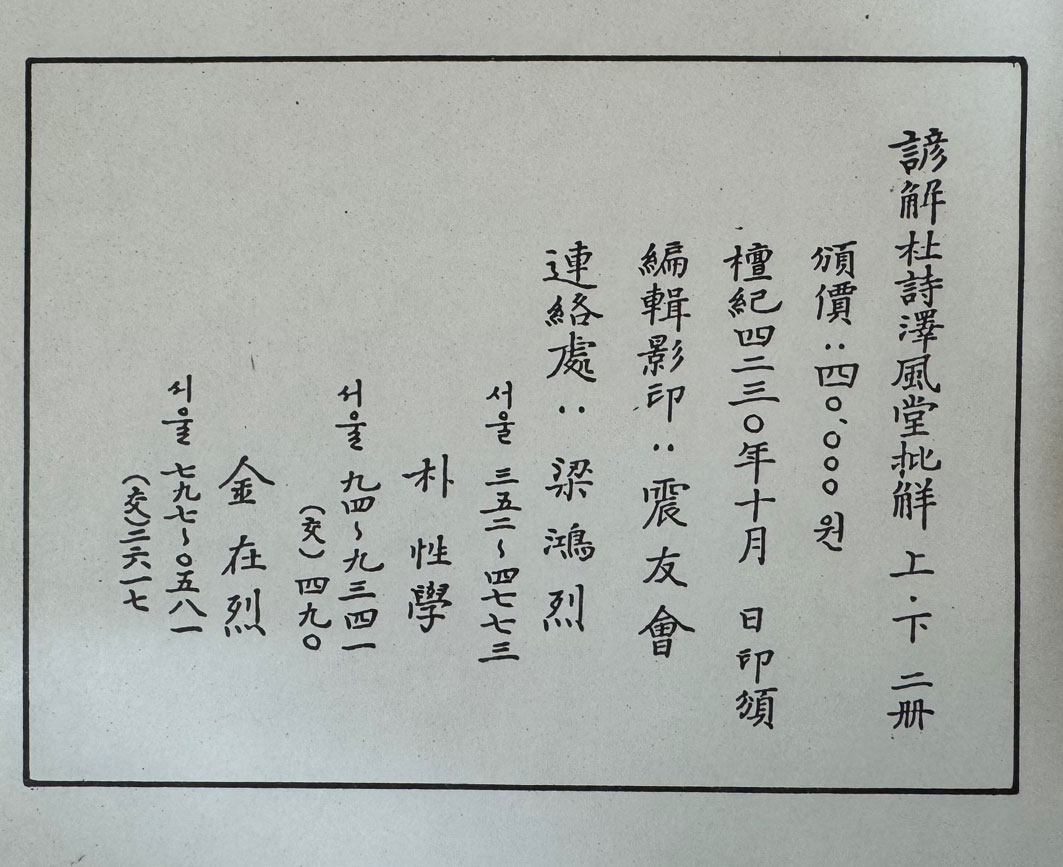 諺解杜詩澤風堂批解 上·下 二册
頒價：四〇、〇〇〇 원
檀紀四二三〇年十月 日印頒
編輯影印：震友會
連絡處：梁鴻烈
서울 三五二~四七七三
朴性學
서울 九四~九三四一
(交)四九〇
金在烈
서울 七九七~〇五八一
(交)二六一七